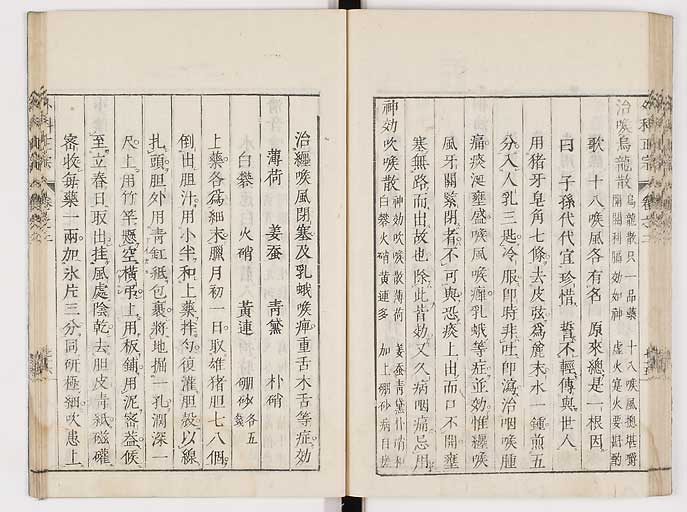 外科正宗 卷之二
治喉烏龍散 烏龍散只一品藥 十八喉風總堪嚼
開關利膈効如神 虛火寔火要斟酌
歌 十八喉風各有名 原來總是一根因
曰 子孫代代宜珍惜 誓不輕傳與世人
用猪牙皂角七條去皮弦為麄末水一鍾煎五
分入人乳三匙冷服即時非吐即瀉治咽喉腫
痛痰涎壅盛喉風喉癰乳蛾等症並効惟纏喉
風牙關緊閉者不可與恐痰上出而口不開壅
塞無路而出故也除此皆効又久病咽痛忌用
神効吹喉散 神効吹喉散薄荷 姜蚕青黛朴硝和
白礬火硝黃連多 加上硼砂病自瘥
治纏喉風閉塞及乳蛾喉痺重舌木舌等症効
薄荷 姜蚕 青黛 朴硝
白礬 火硝 黃連 硼砂各五錢
上藥各為細末臘月初一日取雄猪胆七八個
倒出胆汁用小半和上藥拌勻復灌胆殼以線
扎頭胆外用青缸紙包裹將地掘一孔濶深一
尺上用竹竿懸空橫吊上用板鋪用泥密蓋候
至立春日取出挂風處陰乾去胆皮青紙磁礶
密收每藥一兩加氷片三分同研極細吹患上
外科正宗